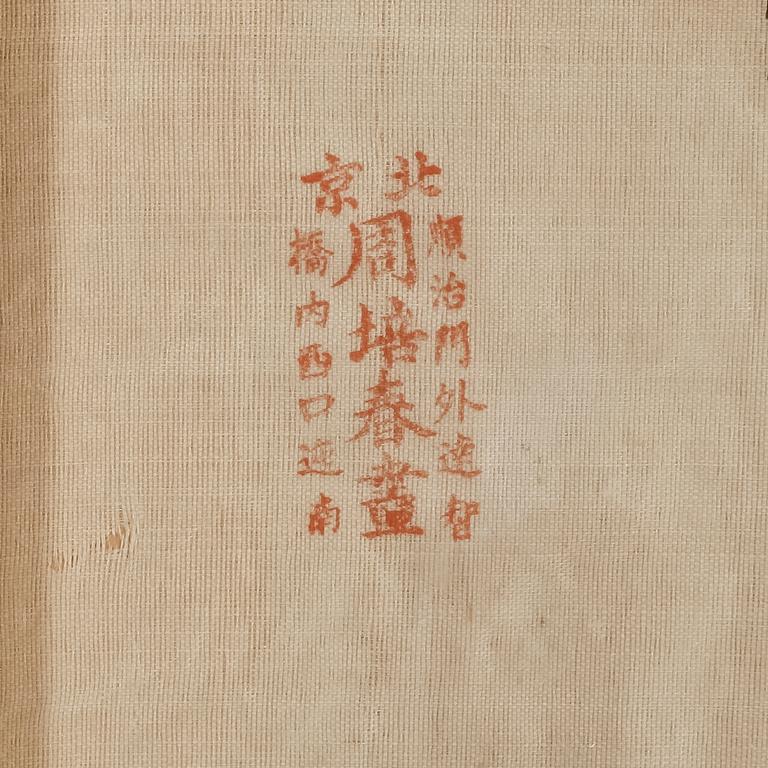 北京
順治門外迤智
周培春畫
橋內西口迤南